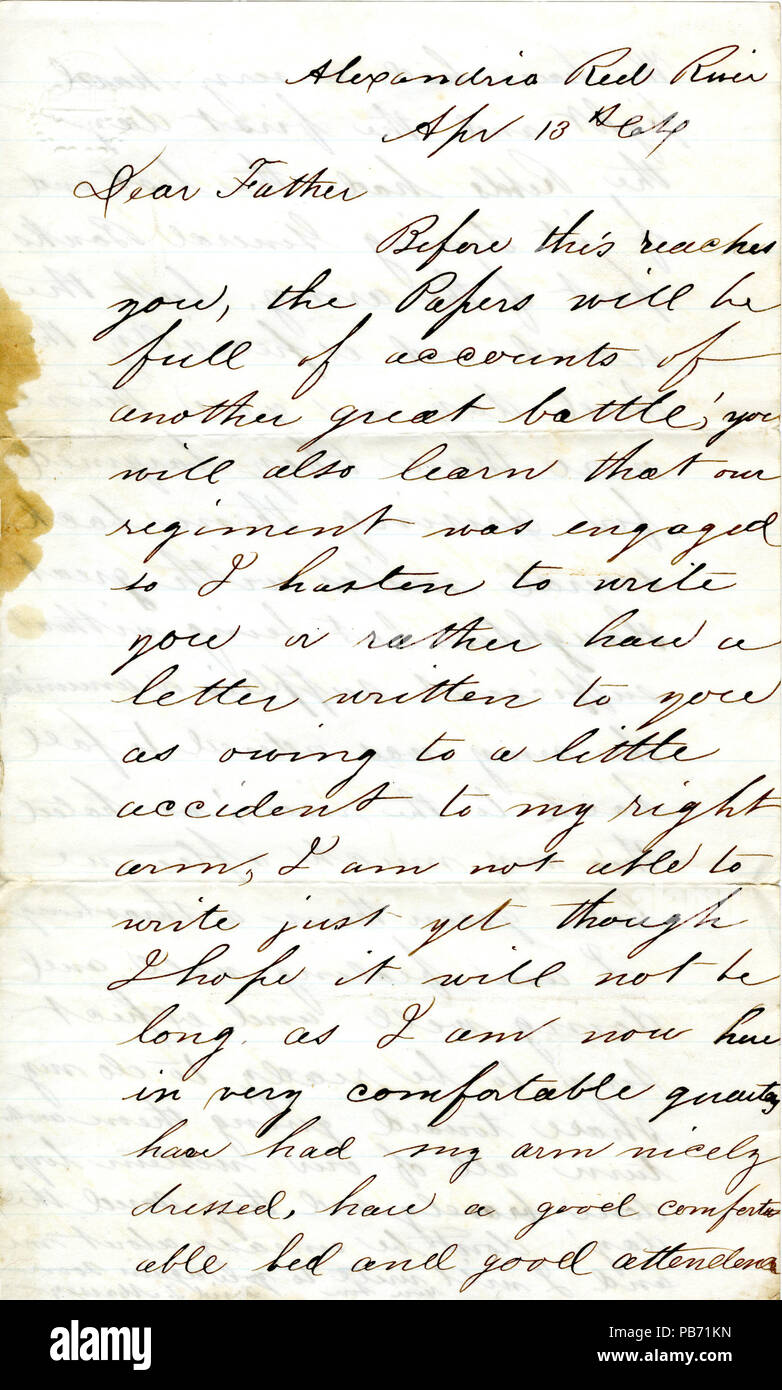 Alexandria Red River
Apr 13th 64
Dear Father
Before this reaches
you, the Papers will be
full of accounts of
another great battle, you
will also learn that our
regiment was engaged
so I hasten to write
you or rather have a
letter written to you
as owing to a little
accident to my right
arm, I am not able to
write just yet though
I hope it will not be
long. as I am now here
in very comfortable quarters
have had my arm nicely
dressed, have a good comfort
able bed and good attendence
alamy
Image ID: PB71KN
www.alamy.com